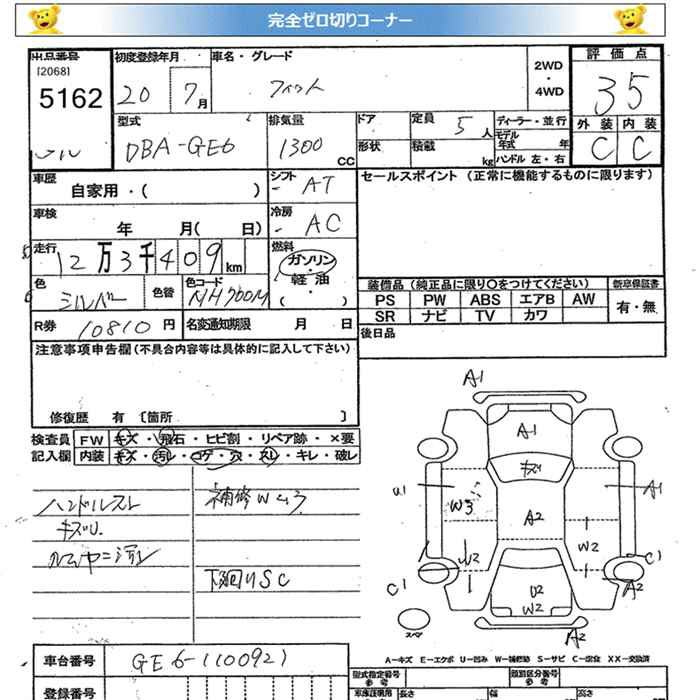 完全ゼロ切りコーナー
出品番号 初度登録年月 車名・グレード 2WD 評価点
[2068]
5162 20 7月 フィット ・4WD 35
型式 排気量 ドア 定員 ディーラー・並行 外装 内装
DBA-GE6 1300 CC 5人 モデル年式 年 C C
形状 積載 kg ハンドル 左・右
車歴 自家用・( ) シフト - AT セールスポイント(正常に機能するものに限ります)
車検 年 月( 日) 冷房 - AC
走行 12万3千409km 燃料 ガソリン・軽油・( )
色 シルバー 色替 色コード NH700M 装備品(純正品に限り〇をつけてください) 新車保証書
PS PW ABS エアB AW 有・無
SR ナビ TV カワ
R券 10810円 名変通知期限 月 日 後日品
注意事項申告欄(不具合内容等は具体的に記入して下さい)
修復歴 有 [箇所 ]
検査員 FW キズ・飛石・ヒビ割・リペア跡・×要
記入欄 内装 キズ・汚レ・コゲ・穴・スレ・キレ・破レ
ハンドルスレ 補修Wムラ
キズU
下廻りSC
A1
A1
キズ
U1 W3 A2 A1
W2 W2
C1 C1
U2 A2
W2
A2
スペア
A-キズ E-エクボ U-凹み W-補修跡 S-サビ C-腐食 XX-交換済
車台番号 GE6-1100921 型式指定番号 類別区分番号
登録番号 長さ 幅 高さ